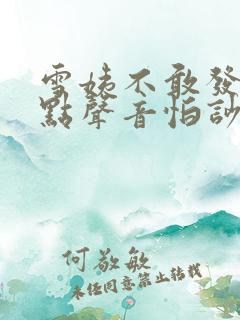 雪姨不敢發
點聲音怕訬
何敬敏
未经同意禁止转载